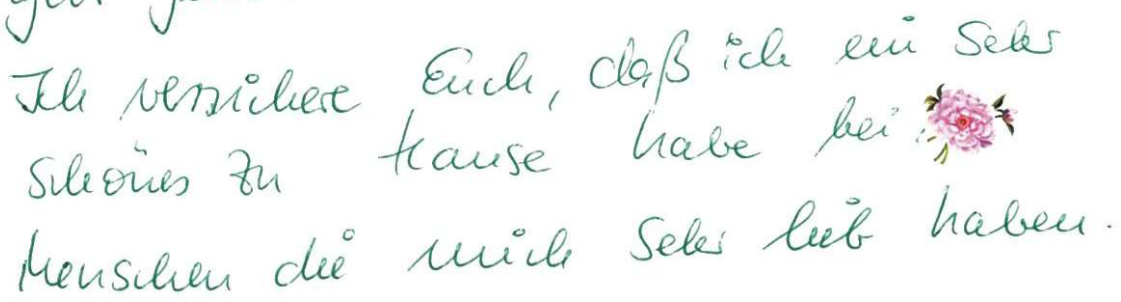 Ich versichere Euch, daß ich ein sehr
schönes zu Hause habe bei
Menschen die mich sehr lieb haben.